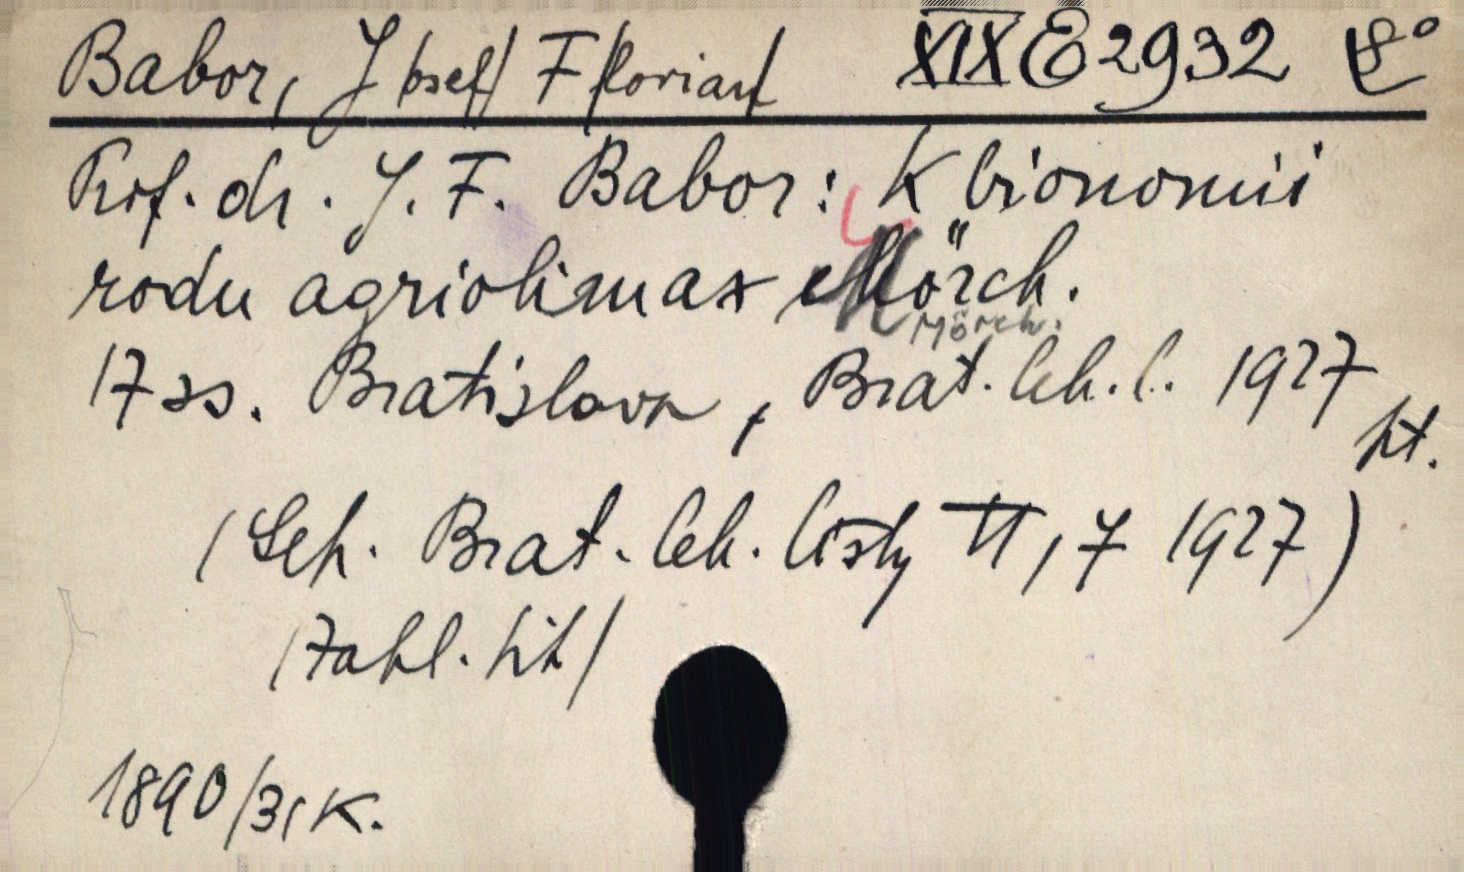 Babor, J/osef/ F/lorian/ XIX E 2932 8°
Prof. dr. J. F. Babor: K bionomii
rodu agriolimax Mörch.
Mörch.
17 ss. Bratislava, Brat. lek. l. 1927
(Seh. Brat. lek. listy II, 7 1927)
1890/31 K.